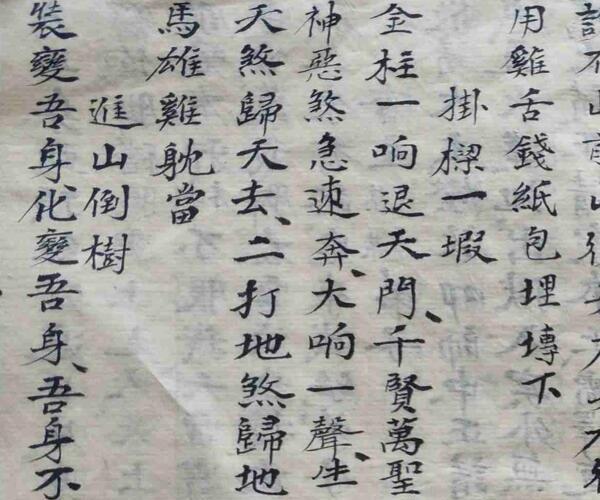 用雞舌錢紙包埋塼下
掛一瑕
金柱一响退天門、千賢萬聖
神惡煞急速奔、大响一聲、牛
天煞歸天去、二打地煞歸地
馬雄雞躭當
進山倒樹
裝變吾身化變吾身、吾身不